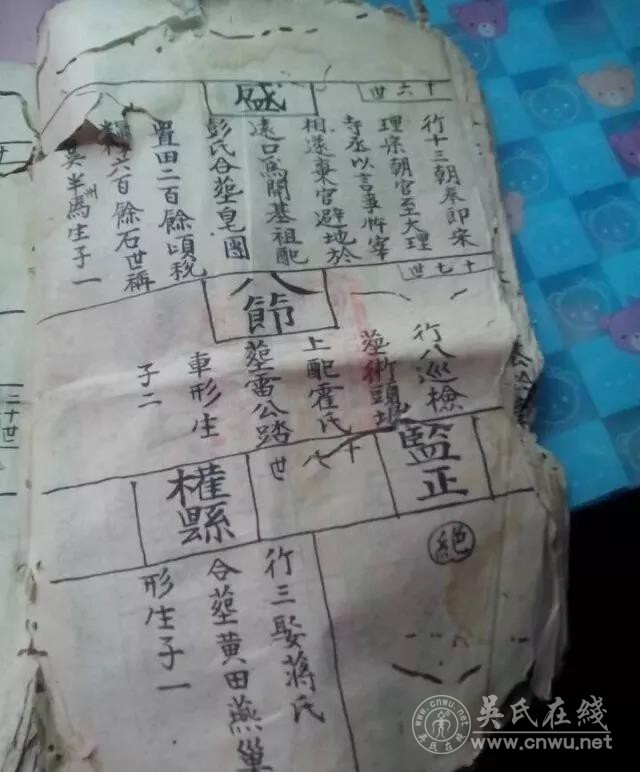 十六世
盛
行十三朝奉郎宋
理宗朝官至大理
寺丞以言事忤宰
相遂棄官避地於
遠口為開基祖配
彭氏合塟皂團
置田二百餘頃税
糧六百餘石世稱
吳半州焉生子一
十七世
八節
行八巡檢
塟衙頭坡
上配霍氏
塟雷公踏
車形生
子二
十八世
監正
絕
權縣
行三娶蔣氏
合塟黄田燕巢
形生子一
二十世
吳氏在綫
www.cnwu.net